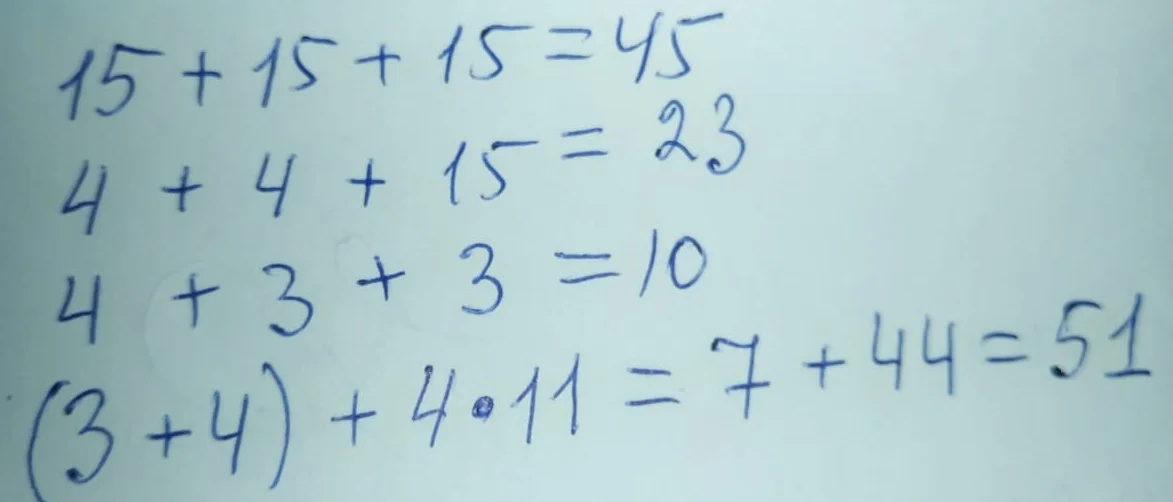 15 + 15 + 15 = 45
4 + 4 + 15 = 23
4 + 3 + 3 = 10
(3 + 4) + 4 • 11 = 7 + 44 = 51